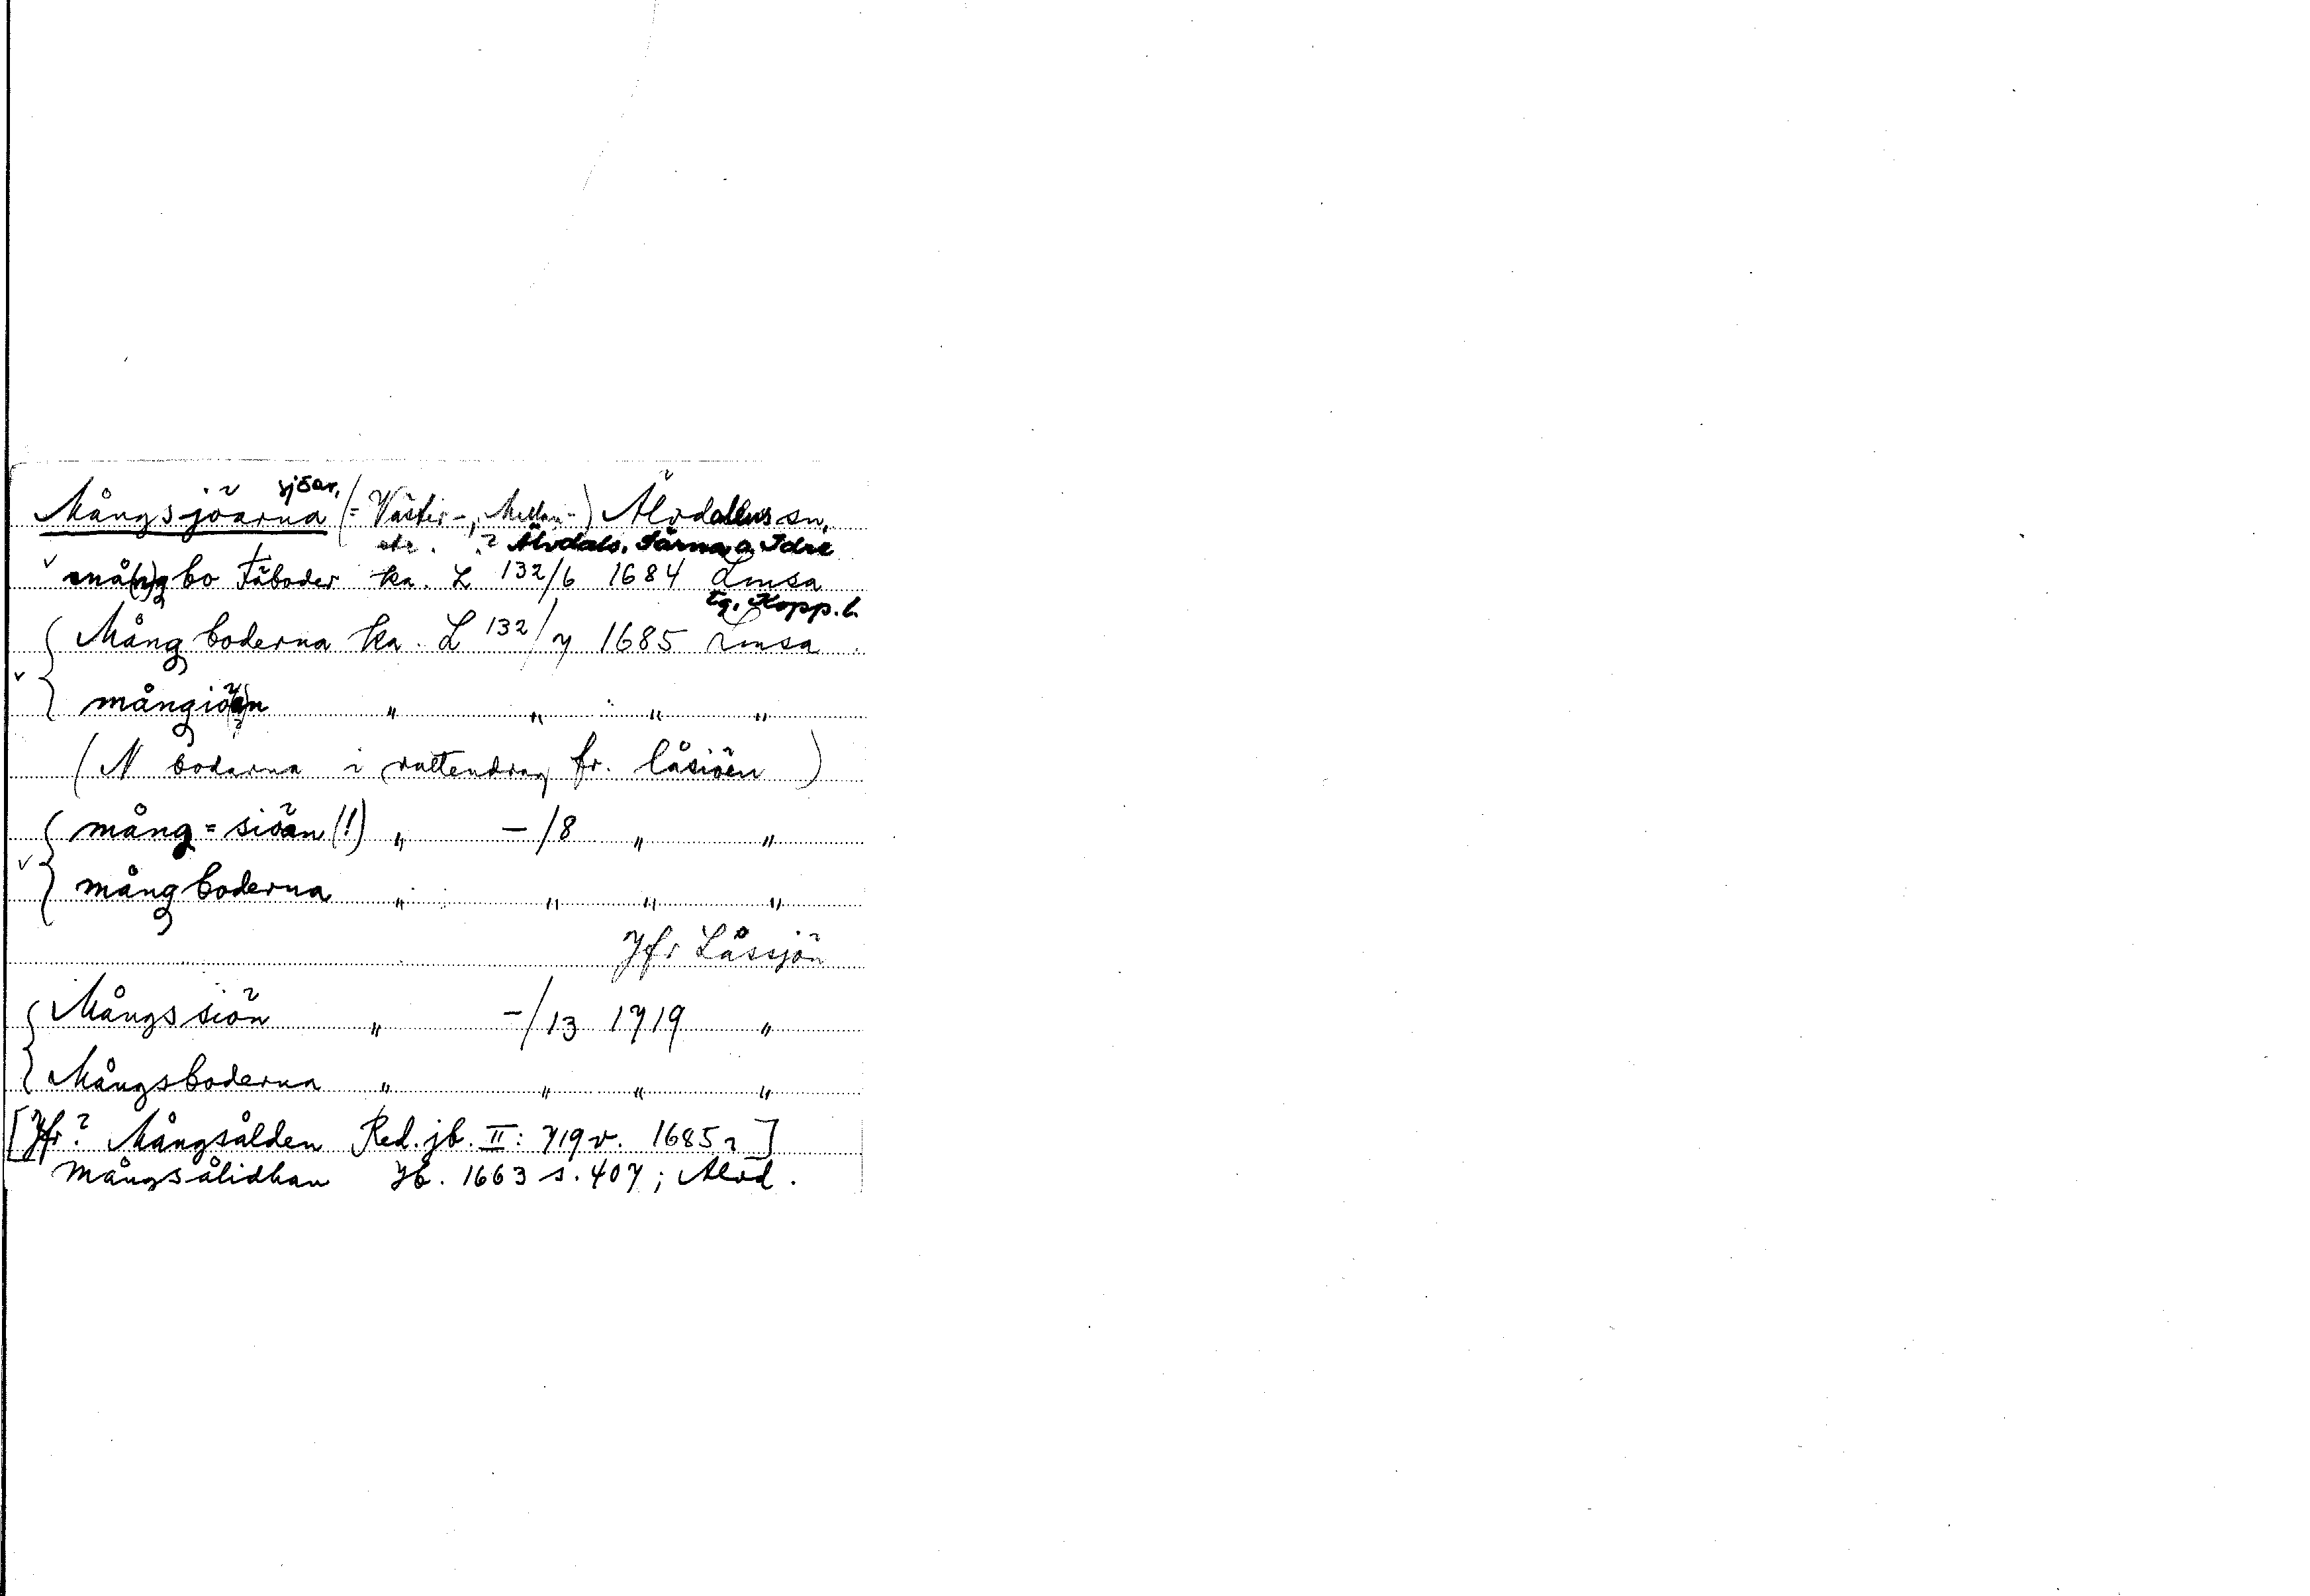 Mångsjöarna sjöar, (= Väster-, Mellan-) Älvdallens sn,
etc. ? Älvdals, Särna o. Idre
v må(n)gbo Fäboder ka. L 132/6 1684 Lmsa
tg, Kopp. l.
Mångboderna ka. L 132/7 1685 Lmsa
v mångiö(a)n " " " "
(N bodarna i vattendrag fr. låsiöen)
mång=siöän (!) " –/8 " "
v mångboderna " " " "
Jfr Låssjön
Mångssiön " –/13 1719 "
Mångsboderna " " " "
[Jfr? Mångsålden Red. jb. II: 719 v. 1685 ]
Mångsålidhan Jb. 1663 s. 407; Älvd.